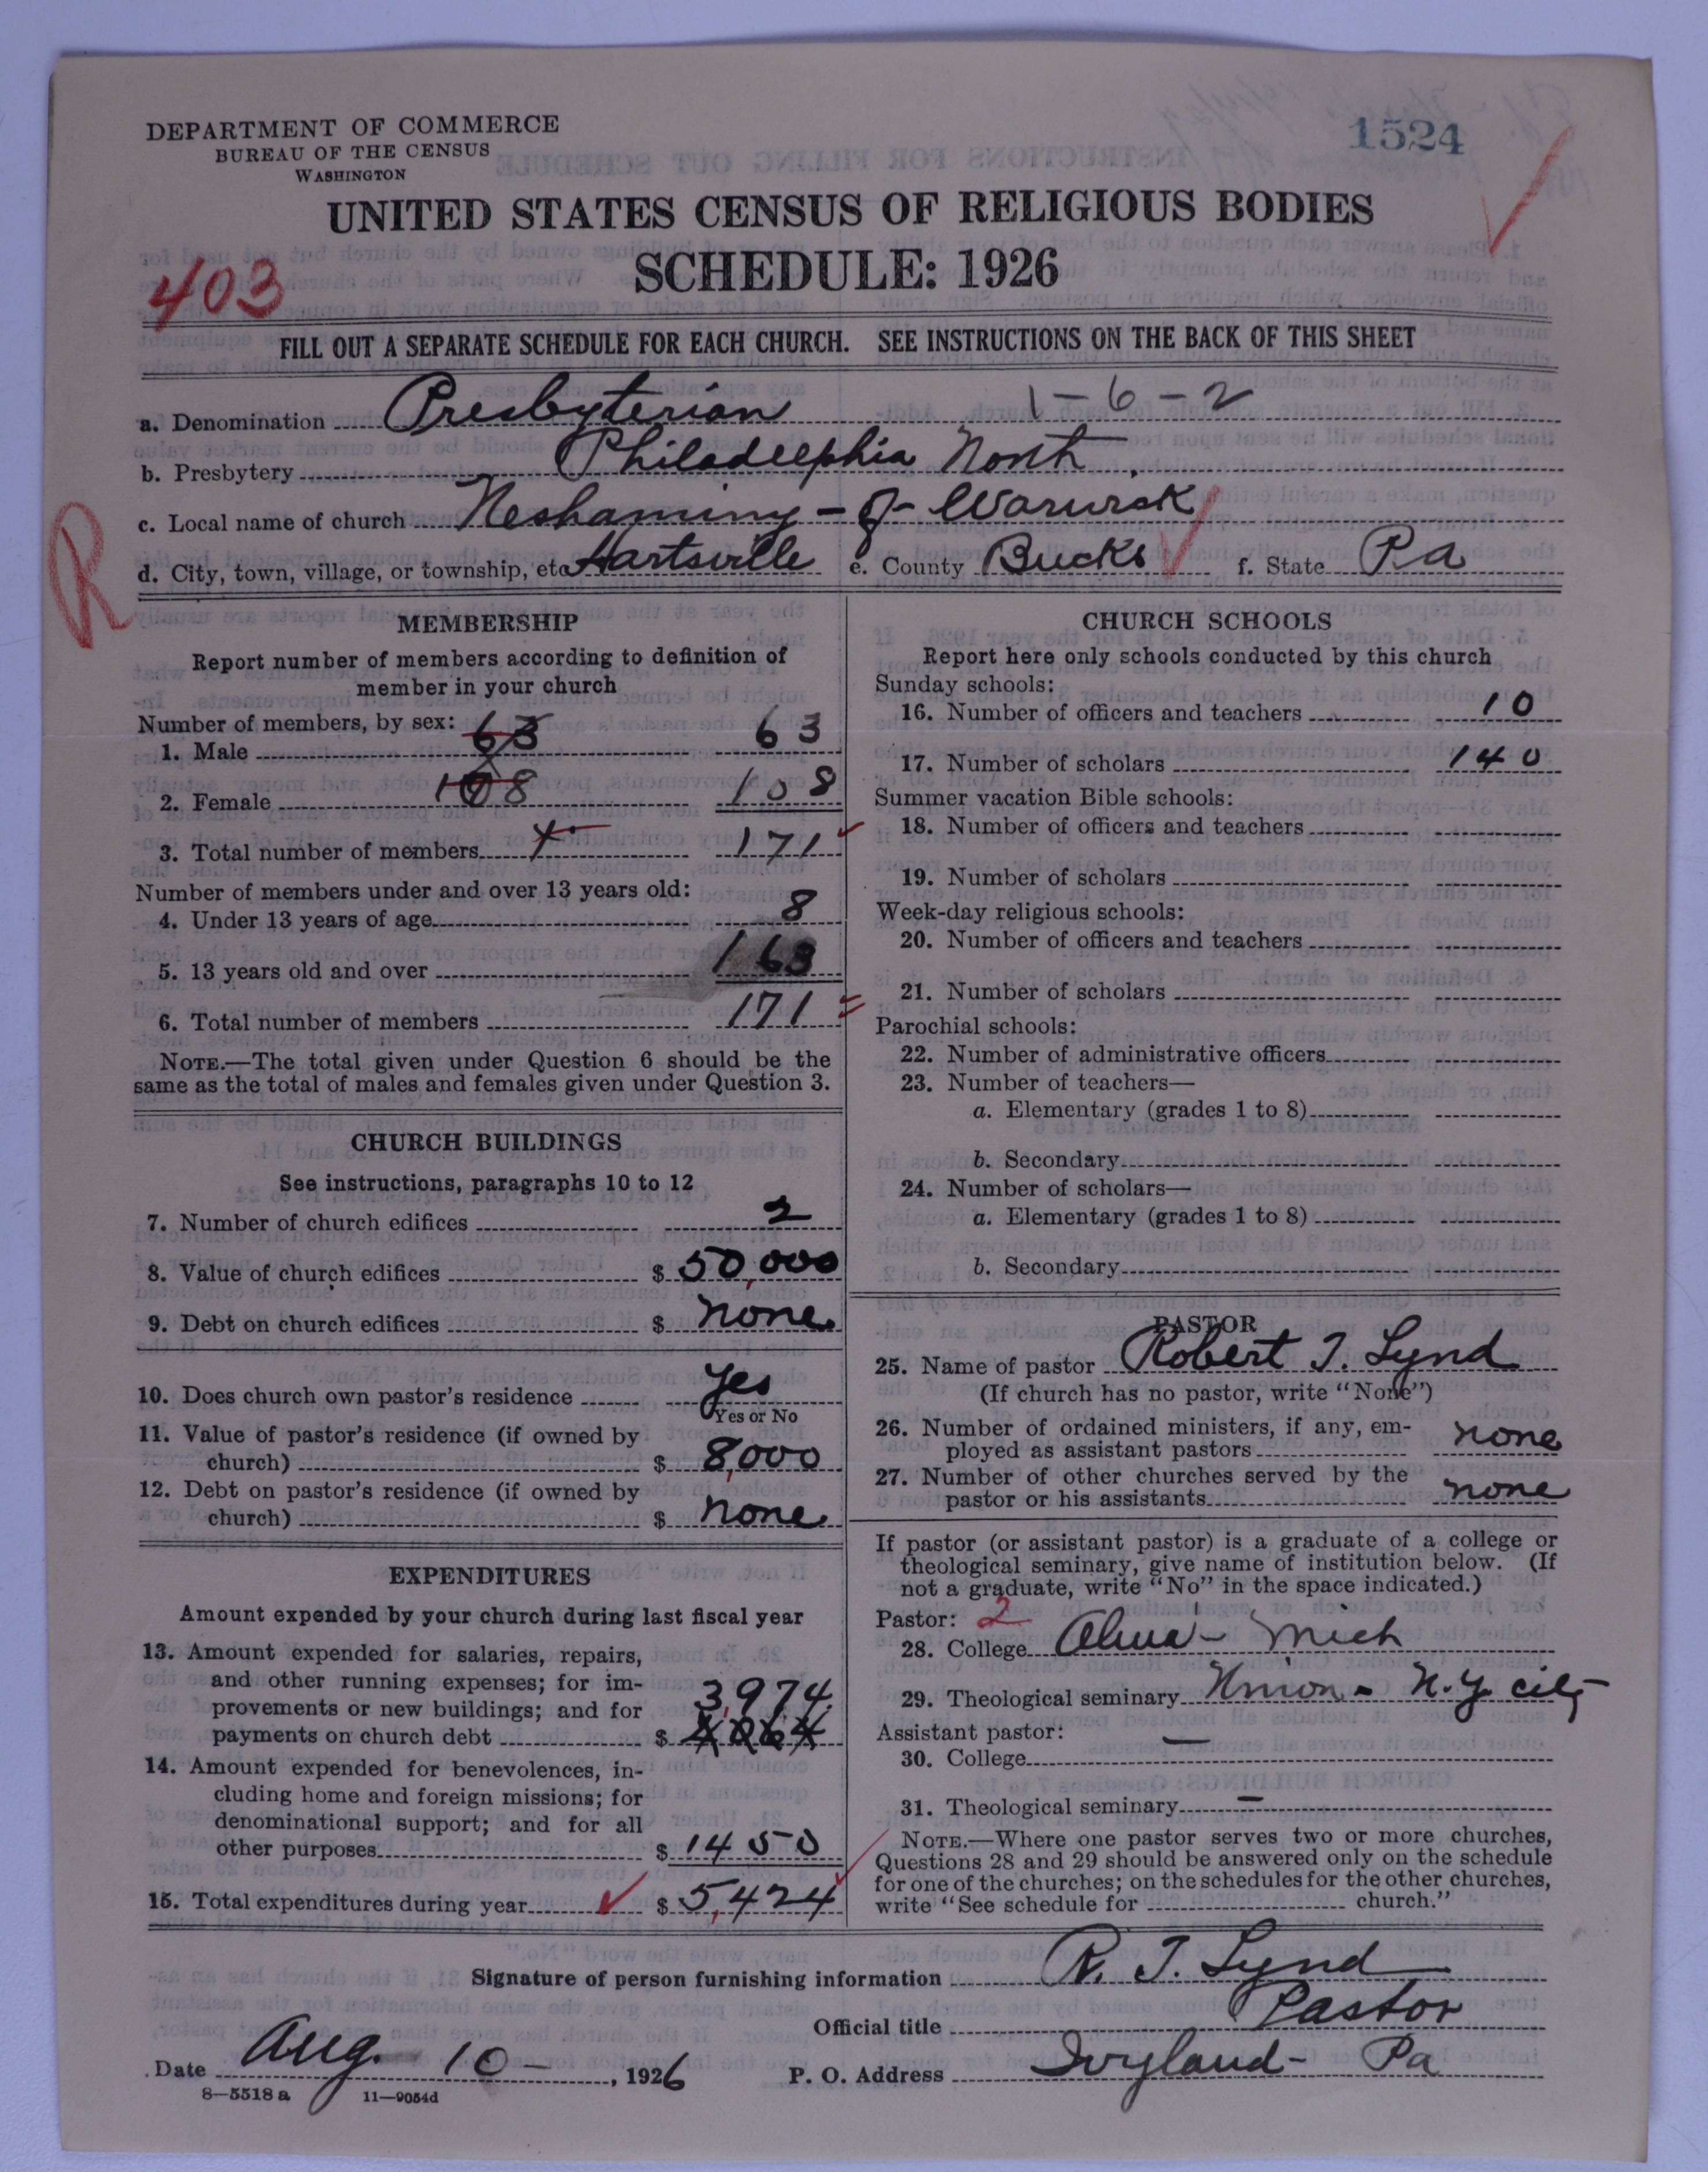 1524
DEPARTMENT OF COMMERCE
BUREAU OF THE CENSUS
WASHINGTON
UNITED STATES CENSUS OF RELIGIOUS BODIES
SCHEDULE: 1926
403
FILL OUT A SEPARATE SCHEDULE FOR EACH CHURCH. SEE INSTRUCTIONS ON THE BACK OF THIS SHEET
a. Denomination Presbyterian 1-6-2
b. Presbytery Philadelphia North.
c. Local name of church Neshaminy - of - Warwick
R
d. City, town, village, or township, etc Hartsville e. County Bucks f. State Pa
MEMBERSHIP
Report number of members according to definition of
member in your church
Number of members, by sex:
1. Male 63 63
2. Female 108 108
3. Total number of members 171
Number of members under and over 13 years old:
4. Under 13 years of age 8
5. 13 years old and over 163
6. Total number of members 171
NOTE.—The total given under Question 6 should be the
same as the total of males and females given under Question 3.
CHURCH BUILDINGS
See instructions, paragraphs 10 to 12
7. Number of church edifices 2
8. Value of church edifices $ 50,000
9. Debt on church edifices $ none
10. Does church own pastor's residence Yes
Yes or No
11. Value of pastor's residence (if owned by
church) $ 8,000
12. Debt on pastor's residence (if owned by
church) $ none
EXPENDITURES
Amount expended by your church during last fiscal year
13. Amount expended for salaries, repairs,
and other running expenses; for im-
provements or new buildings; and for 3,974
payments on church debt $
14. Amount expended for benevolences, in-
cluding home and foreign missions; for
denominational support; and for all
other purposes $ 1450
15. Total expenditures during year $ 5,424
CHURCH SCHOOLS
Report here only schools conducted by this church
Sunday schools:
16. Number of officers and teachers 10
17. Number of scholars 140
Summer vacation Bible schools:
18. Number of officers and teachers
19. Number of scholars
Week-day religious schools:
20. Number of officers and teachers
21. Number of scholars
Parochial schools:
22. Number of administrative officers
23. Number of teachers—
a. Elementary (grades 1 to 8)
b. Secondary
24. Number of scholars—
a. Elementary (grades 1 to 8)
b. Secondary
PASTOR
25. Name of pastor Robert J. Lynd
(If church has no pastor, write "None")
26. Number of ordained ministers, if any, em-
ployed as assistant pastors none
27. Number of other churches served by the
pastor or his assistants none
If pastor (or assistant pastor) is a graduate of a college or
theological seminary, give name of institution below. (If
not a graduate, write "No" in the space indicated.)
Pastor: 2
28. College Alma - Mich
29. Theological seminary Union - N.Y. city
Assistant pastor:
30. College —
31. Theological seminary —
NOTE.—Where one pastor serves two or more churches,
Questions 28 and 29 should be answered only on the schedule
for one of the churches; on the schedules for the other churches,
write "See schedule for church."
Signature of person furnishing information R. J. Lynd
Official title Pastor
Date Aug. 10 - , 1926 P. O. Address Ivyland - Pa
8—5518 a 11—9054d